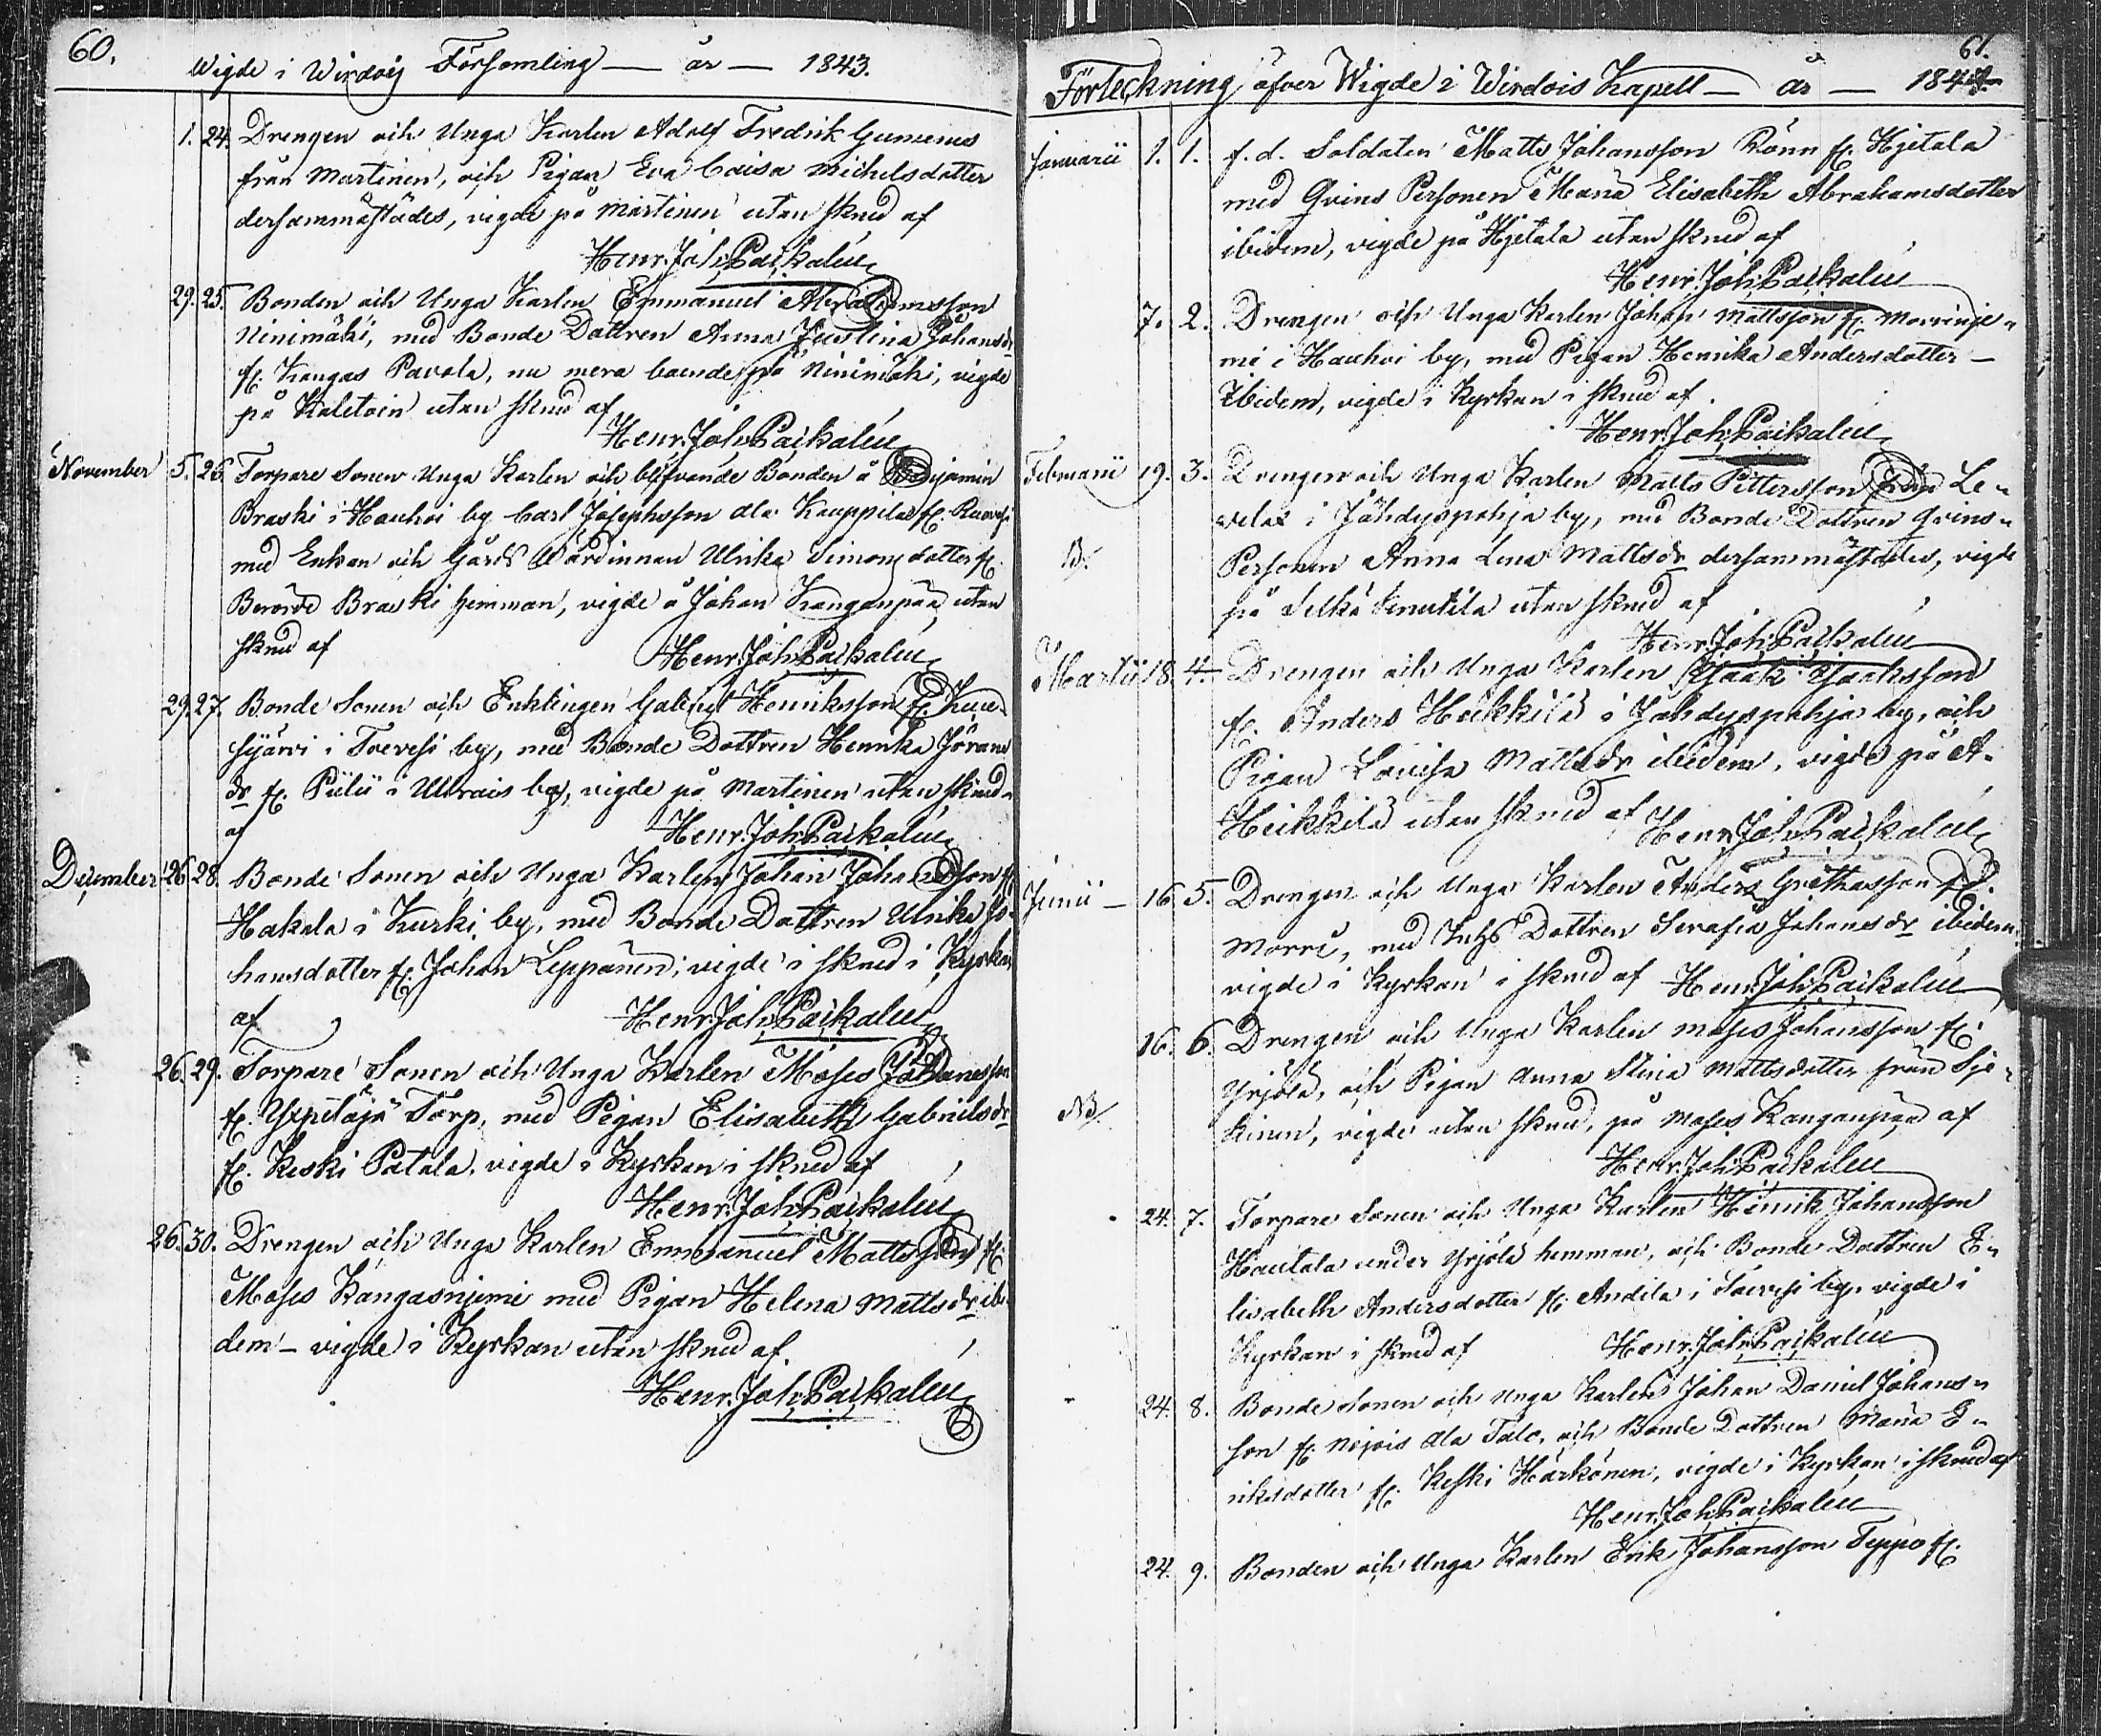 60.
Wigde i Wirdois Församling — år — 1843.
1. 24. Drengen och Unga Karlen Adolf Fredrik Gumerus
från Martinen, och Pigan Eva Caisa Michelsdotter
dersammastädes, vigde på Martinen utan skrud af
Henr. Joh. Paikalén
29. 25. Bonden och Unga Karlen Emmanuel Abrahamsson
Ninimäki, med Bonde Dottren Anna Justina Johansdr
fr. Kangas Pavola, nu mera boende på Ninimäki, vigde
på Kaletoin utan skrud af
Henr. Joh. Paikalén
November 5. 26. Torpare Sonen Unga Karlen och blifvande Bonden å Benjamin
Braski i Hauhoi by Carl Josephsson ala Kauppila fr. Ruovesi
med Enkan och Gårds Wärdinnan Ulrika Simonsdotter fr.
Berörde Braski hemman, vigde å Johan Kanganpää utan
skrud af
Henr. Joh. Paikalén
29. 27. Bonde Sonen och Enklingen Gabriel Henriksson fr.
i Toivesi by, med Bonde Dottren Henrika Jörans
dr fr. Pülii i Ulvais by, vigde på Martinen utan skrud
af
Henr. Joh. Paikalén
December 26. 28. Bonde Sonen och Unga Karlen Johan Johansson fr
Hakala i Kurki by, med Bonde Dottren Ulrika Jo-
hansdotter fr. Johan Leppänen; vigde i skrud i Kyrkan
af
Henr. Joh. Paikalén
26. 29. Torpare Sonen och Unga Karlen Moses Johansson
fr. Torp, med Pigan Elisabeth Gabrielsdr
fr. Keski Patala, vigde i Kyrkan i skrud af
Henr. Joh. Paikalén
26. 30. Drengen och Unga Karlen Emmanuel Mattsson fr.
Moses Kangasnjemi med Pigan Helena Mattsdr ibi-
dem – vigde i Kyrkan utan skrud af.
Henr. Joh. Paikalén
61.
Förteckning öfver Wigde i Wirdois Kapell — år — 1844.
Januarii 1. 1. f. d. Soldaten Matts Johansson Rönn fr. Hjetala
med Qvins Personen Maria Elisabeth Abrahamsdotter
ibidem, vigde på Hjetala utan skrud af
Henr. Joh. Paikalén
7. 2. Drengen och Unga Karlen Johan Mattsson fr. Morrinje-
mi i Hauhoi by, med Pigan Henrika Andersdotter –
Ibidem, vigde i Kyrkan i skrud af.
Henr. Joh. Paikalén
Februarii 19. 3. Drengen och Unga Karlen Matts Pettersson från Le-
velax i Jähdyspohja by, med Bonde Dottren Qvins-
NB. Personen Anna Lena Mattsdr dersammastädes, vigde
på Selkä Knutila utan skrud af
Henr. Joh. Paikalén
Martii 18. 4. Drengen och Unga Karlen Isaak Isaaksson
fr. Anders Heikkilä i Jähdyspohja by, och
Pigan Lovisa Mattsdr ibidem, vigde på A.
Heikkilä utan skrud af Henr. Joh. Paikalén
Junii – 16. 5. Drengen och Unga Karlen Anders Grethasson fr.
Morri, med Inhs Dottren Serafia Johansdr ibidem
vigde i Kyrkan i skrud af Henr. Joh. Paikalén
16. 6. Drengen och Unga Karlen Moses Johansson fr.
Yrjölä, och Pigan Anna Stina Mattsdotter från Sje-
NB. kinen, vigde utan skrud, på Moses Kanganpää af
Henr. Joh. Paikalén
24. 7. Torpare Sonen och Unga Karlen Henrik Johansson
Hautala under Yrjölä hemman, och Bonde Dottren E-
lisabeth Andersdotter fr. Andila i Toivesi by, vigde i
Kyrkan i skrud af Henr. Joh. Paikalén
24. 8. Bonde Sonen och Unga Karlen Johan Daniel Johans-
son fr. ala Talo, och Bonde Dottren Maria E-
riksdotter fr. Keski Härkönen, vigde i Kyrkan i skrud af
Henr. Joh. Paikalén
24. 9. Bonden och Unga Karlen Erik Johansson Teppo fr.